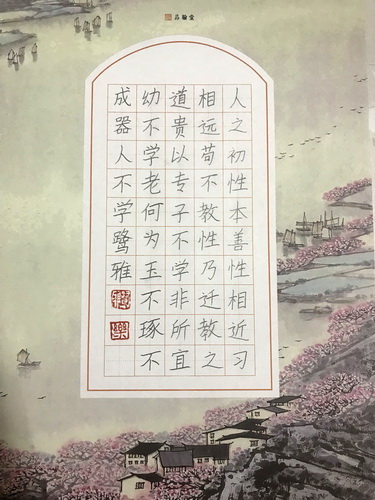 人之初性本善性相近习
相远苟不教性乃迁教之
道贵以专子不学非所宜
幼不学老何为玉不琢不
成器人不学鹭雅